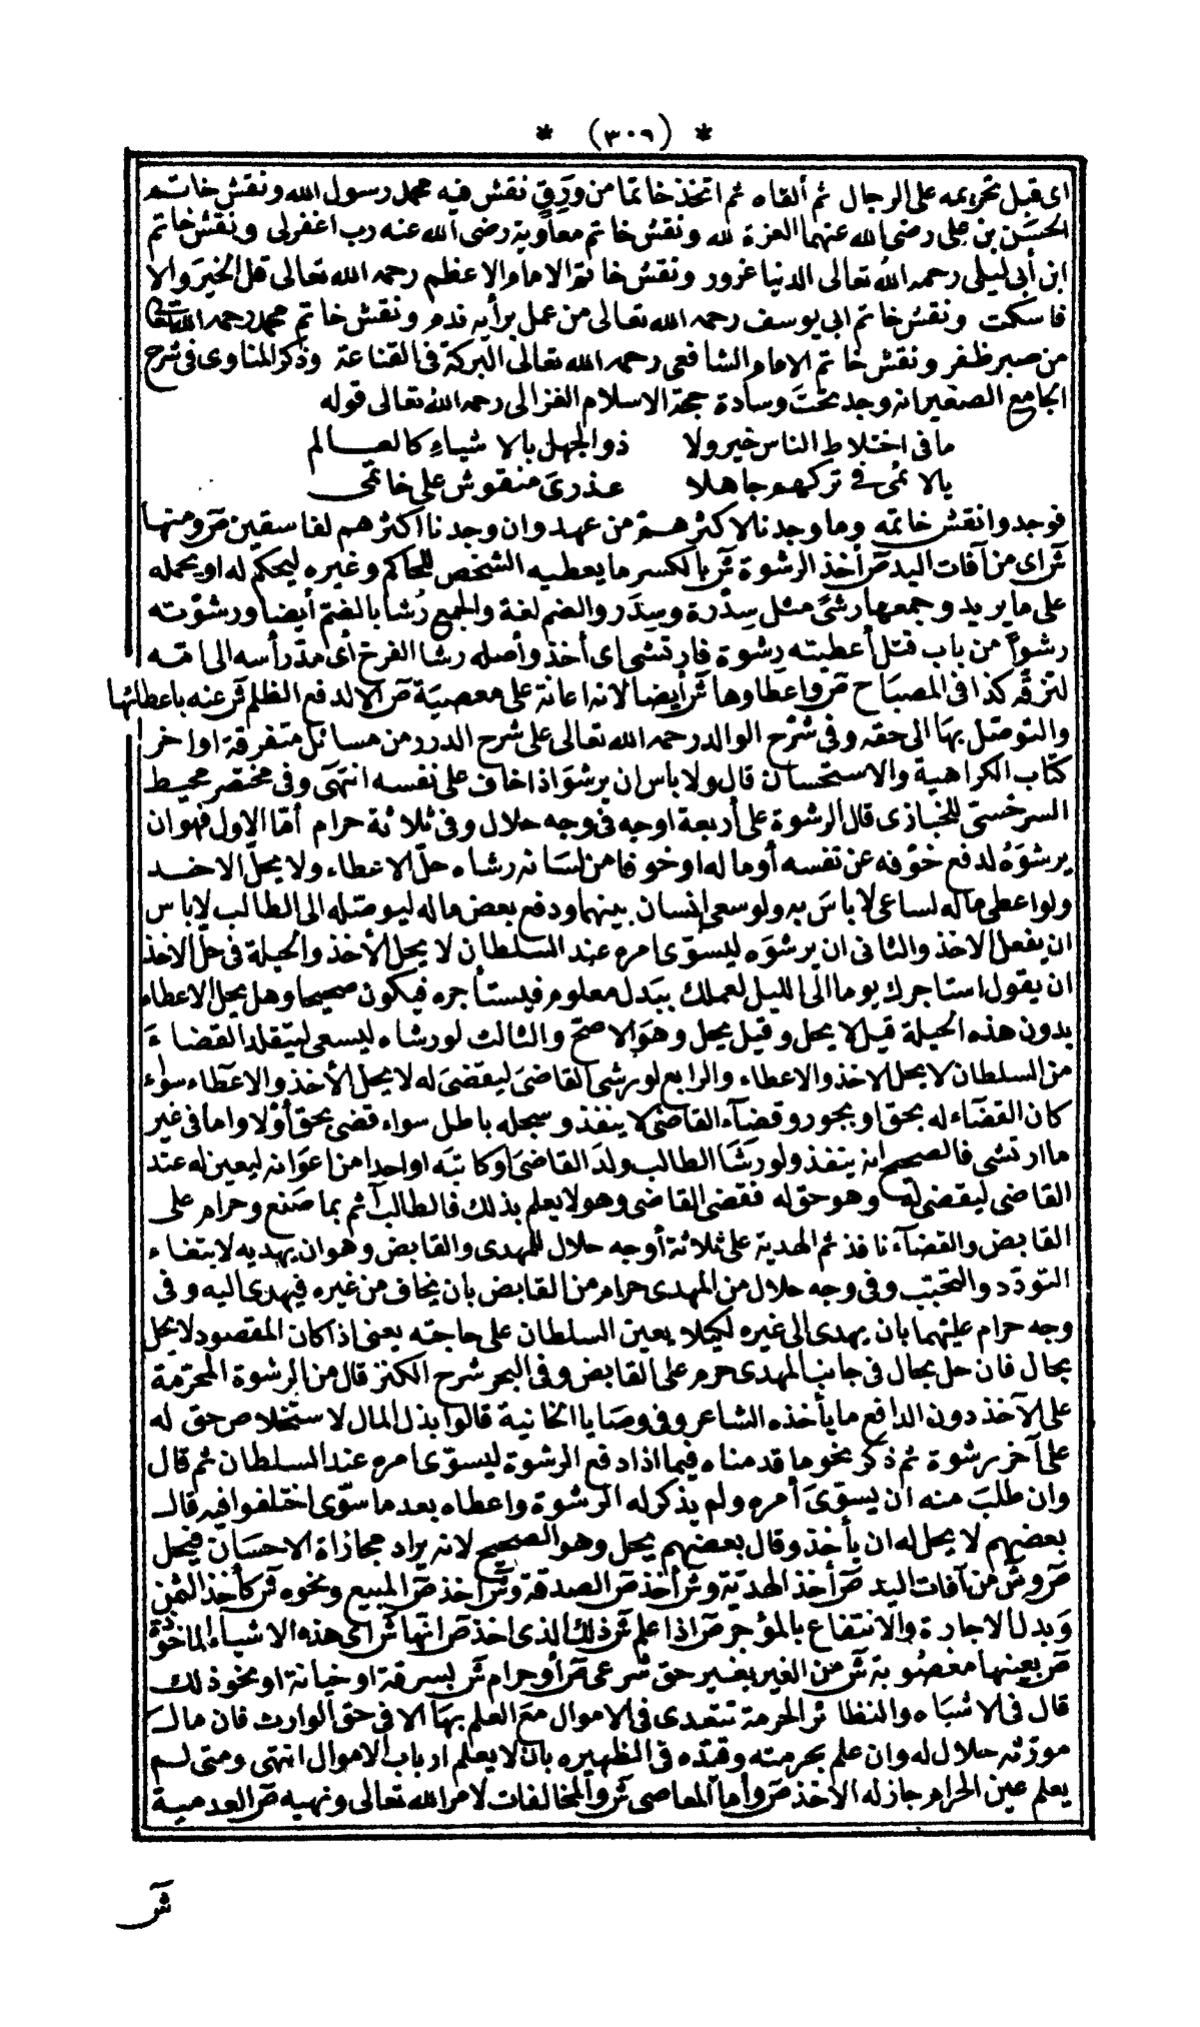 * (٣٠٦) *
اى قبل تحريمه على الرجال ثم ألقاه ثم اتخذ خاتما من وَرِقٍ نقش فيه محمد رسول الله ونقش خاتم
الحسَن بن على رضى الله عنهما العزة لله ونقش خاتم معاوية رضى الله عنه رب اغفر لى ونقش خاتم
ابن أبى ليلى رحمه الله تعالى الدنيا غرور ونقش خاتم الامام الاعظم رحمه الله تعالى قل الخيرَ والا
فاسكت ونقش خاتم ابى يوسف رحمه الله تعالى من عمل برأيه ندم ونقش خاتم محمد رحمه الله تعالى
من صبر ظفر ونقش خاتم الامام الشافعى رحمه الله تعالى البركة فى القناعة وذكر المناوى فى شرح
الجامع الصغير انه وجد تحتَ وسادة حجة الاسلام الغزالى رحمه الله تعالى قوله
ما فى اختلاط الناس خير ولا ذو الجهل بالاشياءِ كالعالم
يا لائمى فى تركهم جاهلا عذرىَ منقوش على خاتمى
فوجدوا نقش خاتمه وما وجدنا لاكثرهم من عهد وان وجدنا اكثرهم لفاسقين صَ ومنها
شَ اى من آفات اليد صَ أخذ الرشوة شَ بالكسر ما يعطيه الشخص للحاكم وغيره ليحكم له او يحمله
على ما يريد وجمعها رشىً مثل سِدْرة وسِدَر والضم لغة والجمع رُشا بالضم أيضا ورشوْته
رشواً من باب قتل أعطيته رشوة فارتشى اى أخذ وأصله رشا الفرخ أى مدّ رأسه الى امّه
لتزقّه كذا فى المصباح صَ واعطاوها شَ أيضا لانه اعانة على معصية صَ الا لدفع الظلم شَ عنه باعطائها
والتوصّل بها الى حقه وفى شرح الوالد رحمه الله تعالى على شرح الدرر من مسائل متفرقة اواخر
كتاب الكراهية والاستحسان قال ولا باس ان يرشوَ اذا خاف على نفسه انتهىَ وفى مختصر محيط
السرخسىّ للخبازى قال الرشوة على أربعة اوجه فى وجه حلال وفى ثلاثة حرام أمّا الاول فهو ان
يرشوَهُ لدفع خوْفه عن نفسه أو ماله او خوفا من لسَانه رشاه حلّ الاعطاء ولا يحلّ الاخذ
ولو اعطى ماله لساعى لا باسَ به ولو سعى إنسان بينهما ودفع بعض ماله ليوصّله الى الطالب لا باس
ان يفعل الاخذ والثانى ان يرشوَه ليسوّى امره عند السلطان لا يحل الأخذ والحيلة فى حلّ الاخذ
ان يقول استاجرك يوما الى الليل لعملك ببَدل معلوم فيستأجره فيكون صحيحا وهل يحل الاعطاء
بدون هذه الحيلة قيل لا يحل وقيل يحل وهوَ الاصحّ والثالث لو رشاه ليسعى ليتقلد القضاءَ
من السلطان لا يحل الاخذ والاعطاء والرابع لو رشى القاضىَ ليقضىَ له لا يحل الأخذ والاعطاء سواء
كان القضَاء له بحق او بجور وقضآء القاضى لا ينفذ وسجله باطل سواء قضى بحق أوْ لا واما فى غير
ما ارتشى فالصحيح انه ينفذ ولو رشَا الطالب ولدَ القاضىَ او كاتبَه او احدا من اعوَانه ليعين له عند
القاضى ليقضى له وهو حق له فقضى القاضى وهو لا يعلم بذلك فالطالب آثم بما صَنع وحرام على
القابض والقضآء نافذ ثم الهدية على ثلاثة أوجه حلال للمهدى والقابض وهو ان يهديه لابتغاء
التودّد والتحبّب وفى وجه حلال من المهدى حرام من القابض بان يخاف من غيره فيهدى اليه وفى
وجه حرام عليهما بان يهدى الى غيره لكيلا يعين السلطان على حاجته يعنى اذا كان المقصود لا يحل
بحال فان حل بحال فى جانب المهدى حرم على القابض وفى البحر شرح الكنز قال من الرشوة المحرّمة
على الآخذ دون الدافع ما يأخذه الشاعر وفى وصَايا الخانية قالوا بذل المال لاستخلاص حق له
على آخر رشوة ثم ذكر نحو ما قدمناه فيما اذا دفع الرشوة ليسوّى امره عند السلطان ثم قال
وان طلبَ منه ان يسوّىَ أمره ولم يذكر له الرشوة واعطاه بعد ما سوّى اختلفوا فيه قال
بعضهم لا يحل له ان يأخذ وقال بعضهم يحل وهو الصحيح لانه يراد مجازاة الاحسَان فيحل
صَ و شَ من آفات اليد صَ أخذ الهديّة و شَ أخذ صَ الصدقة و شَ اخذ صَ المبيع ونحوه شَ كأخذ الثمن
وَبدل الاجارة والانتفاع بالمؤجر صَ اذا علم شَ ذلك الذى اخذ صَ انها شَ اى هذه الاشياء الماخوذة
صَ بعينها مغصُوبة شَ من الغير بغير حق شرعى صَ أو حرام شَ بسرقة او خيانة او نحو ذلك
قال فى الاشبَاه والنظائر الحرمة تتعدى فى الاموال معَ العلم بهَا الا فى حق الوارث فان مال
مورّثه حلال له وان علم بحرمته وقيّده فى الظهيره بان لا يعلم ارباب الاموال انتهى ومتى لم
يعلم عين الحرام جاز له الاخذ صَ وأما المعاصى شَ والمخالفات لامر الله تعالى ونهيه صَ العدمية
شَ